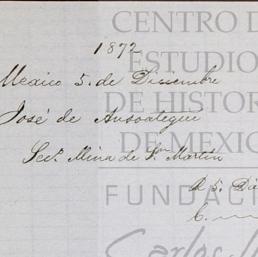 CENTRO D
ESTUDIO
DE HISTOR
DE MEXIC
FUNDAC
Carlos
1872
Mexico 5. de Diciembre
José de Ansoategui
Secº Mina de Sn Martin
A 5. Di